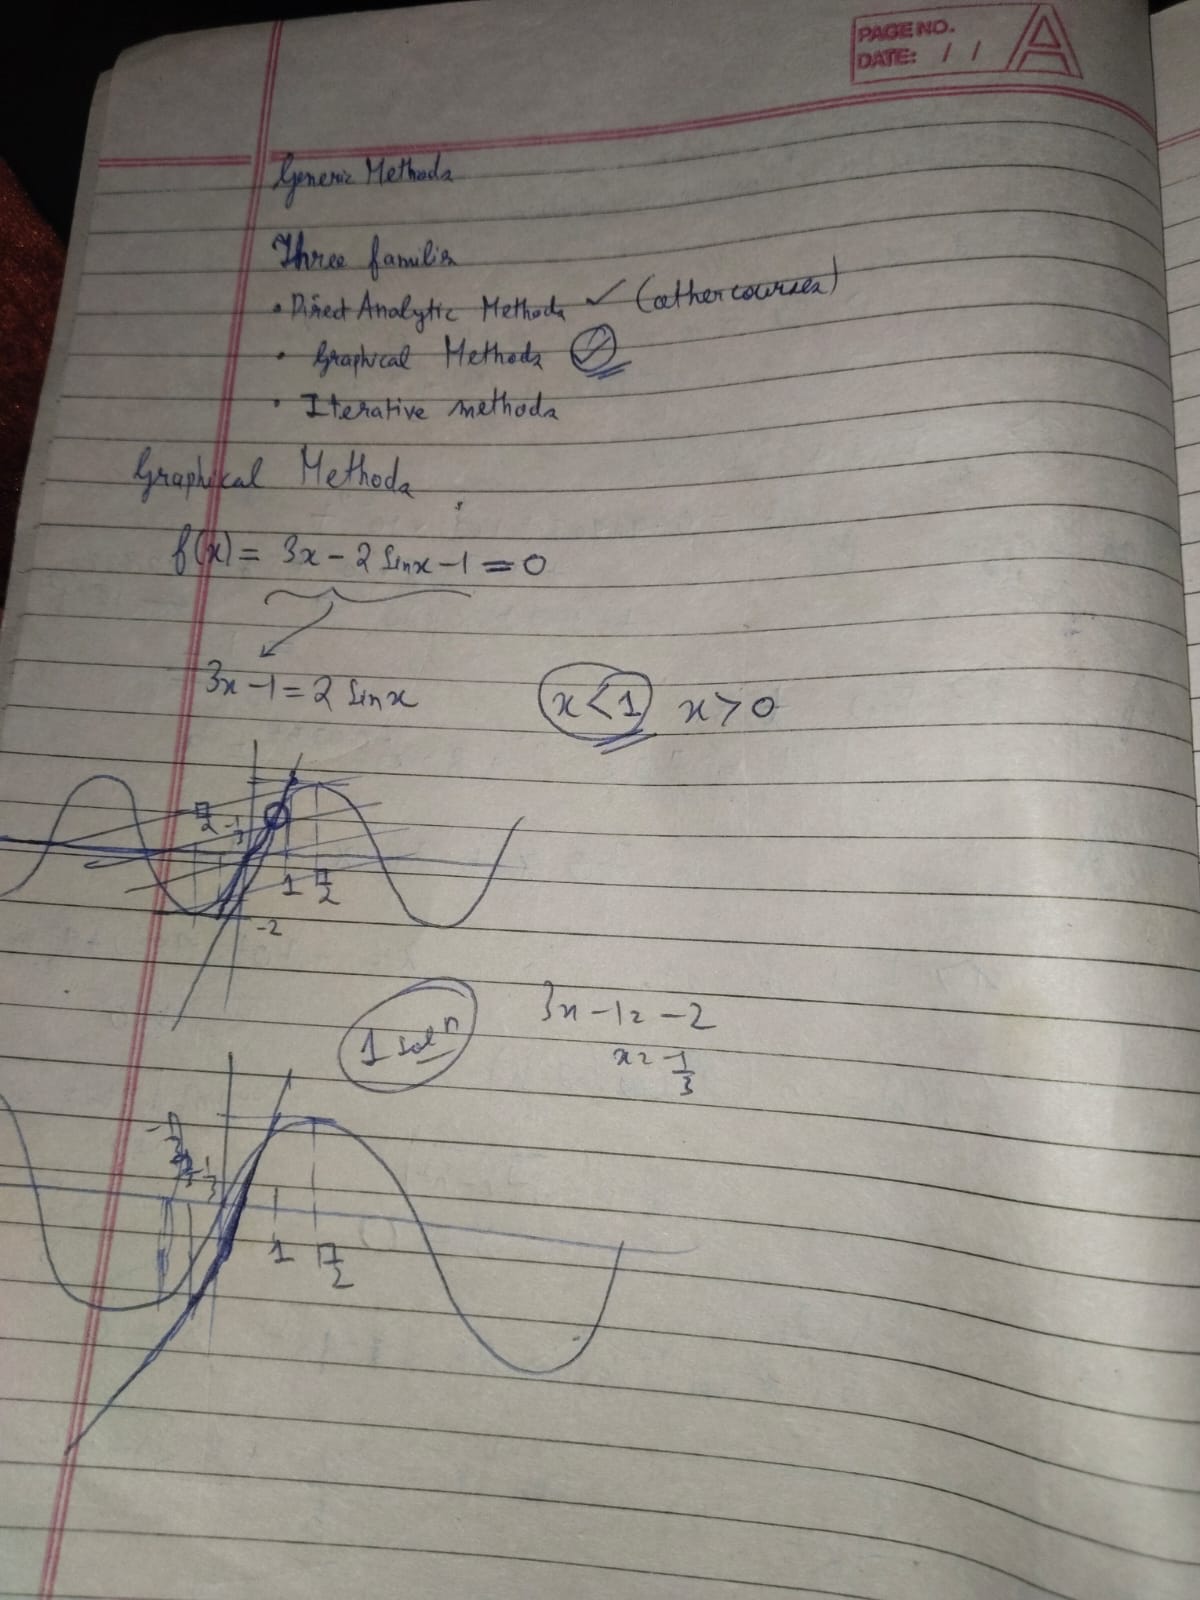 PAGE NO.
DATE: / /
A
Generic Methods
Three families
• Direct Analytic Methods ✓ (other courses)
• Graphical Methods ✓
• Iterative methods
Graphical Methods
f(x) = 3x - 2 sinx - 1 = 0
3x - 1 = 2 sinx x < 1 x > 0
π/2 -1/3
1 π/2
-2
1 solⁿ 3x - 1 = -2
x = -1/3
-1/3
1 π/2